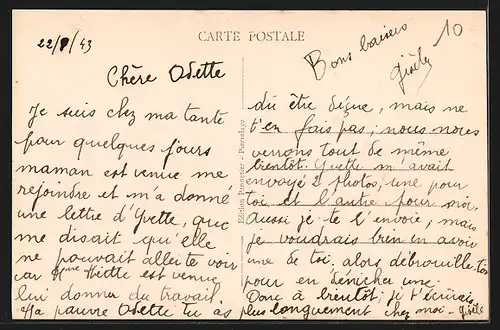 CARTE POSTALE
22/8/43
10
Bons baisers
Gisèle
Chère Odette
Je suis chez ma tante
pour quelques jours
maman est venue me
rejoindre et m'a donné
une lettre d'Yvette, que
me disait qu'elle
ne pouvait aller te voir
car est venue
lui donner du travail.
Ma pauvre Odette tu as
dû être déçue, mais ne
t'en fais pas; nous nous
verrons tout de même
bientôt. Yvette m'avait
envoyé 2 photos, une pour
toi et l'autre pour moi.
Aussi je te l'envoie, mais
je voudrais bien en avoir
une de toi. alors débrouille-toi
pour en dénicher une.
Donc à bientôt; je t'écrirais
plus longuement chez moi - Gisèle
Edition Pierrelaye